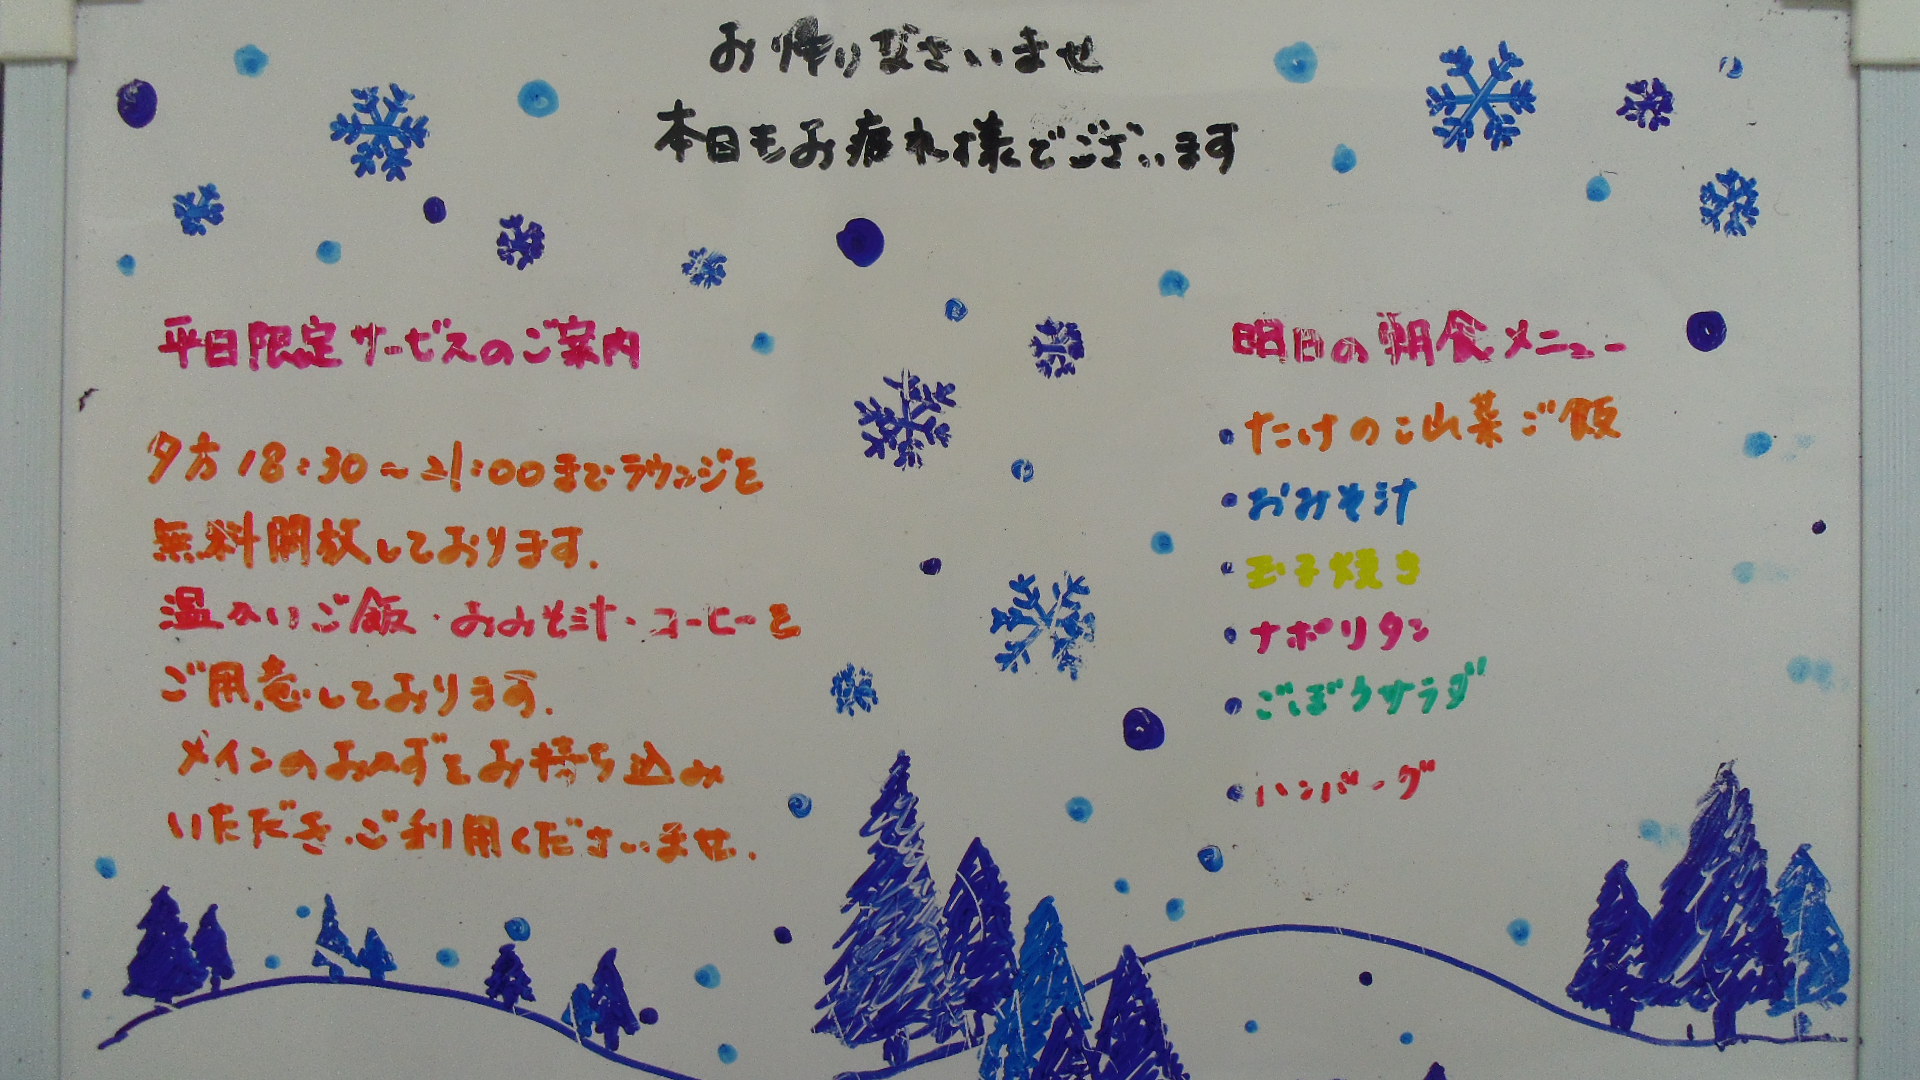 お帰りなさいませ
本日もお疲れ様でございます
平日限定サービスのご案内
夕方18:30～21:00までラウンジを
無料開放しております.
温かいご飯・おみそ汁・コーヒーを
ご用意しております.
メインのおかずをお持ち込み
いただき、ご利用くださいませ.
明日の朝食メニュー
・たけのこ山菜ご飯
・おみそ汁
・玉子焼き
・ナポリタン
・ごぼうサラダ
・ハンバーグ